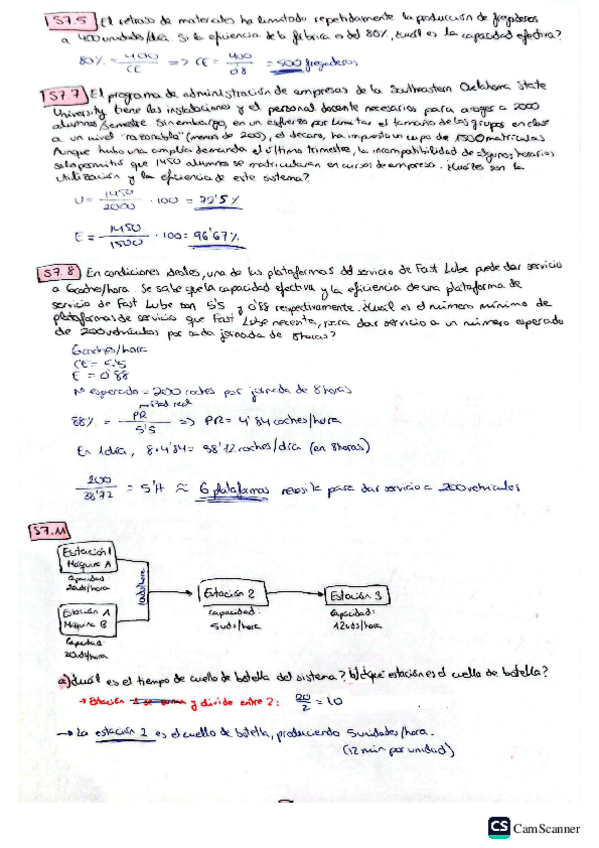 S7.5 El retraso de materiales ha limitado repetidamente la producción de fregaderos
a 400 unidades/día. Si la eficiencia de la fábrica es del 80%, ¿cuál es la capacidad efectiva?
80% = 400/CE => CE = 400/0'8 = 500 fregaderos
S7.7 El programa de administración de empresas de la Southeastern Oklahoma State
University tiene las instalaciones y el personal docente necesarios para acoger a 2000
alumnos/semestre. Sin embargo, en un esfuerzo por limitar el tamaño de los grupos en clase
a un nivel "razonable" (menos de 200), el decano, ha impuesto un cupo de 1500 matrículas.
Aunque hubo una amplia demanda el último trimestre, la incompatibilidad de algunos horarios
solo permitió que 1450 alumnos se matricularan en cursos de empresa. ¿Cuáles son la
utilización y la eficiencia de este sistema?
U = 1450/2000 · 100 = 72'5%
E = 1450/1500 · 100 = 96'67%
S7.8 En condiciones ideales, una de las plataformas del servicio de Fast Lube puede dar servicio
a 6 coches/hora. Se sabe que la capacidad efectiva y la eficiencia de una plataforma de
servicio de Fast Lube son 5'5 y 0'88 respectivamente. ¿Cuál es el número mínimo de
plataformas de servicio que Fast Lube necesita, para dar servicio a un número esperado
de 200 vehículos por cada jornada de 8 horas?
6 coches/hora
CE = 5'5
E = 0'88
Nº esperado = 200 coches por jornada de 8 horas
88% = PR/5'5 => PR = 4'84 coches/hora
En 1 día, 8·4'84 = 38'72 coches/día (en 8 horas)
200/38'72 = 5'17 ≈ 6 plataformas necesita para dar servicio a 200 vehículos
S7.11
Estación 1
Máquina A
Capacidad
20uds/hora
Estación 1
Máquina B
Capacidad
20uds/hora
Estación 2
capacidad:
5uds/hora
Estación 3
Capacidad:
12uds/hora
a) ¿Cuál es el tiempo de cuello de botella del sistema? b) ¿Qué estación es el cuello de botella?
y divide entre 2: 20/2 = 10
→ La estación 2 es el cuello de botella, produciendo 5unidades/hora.
(12 min por unidad)
CS CamScanner